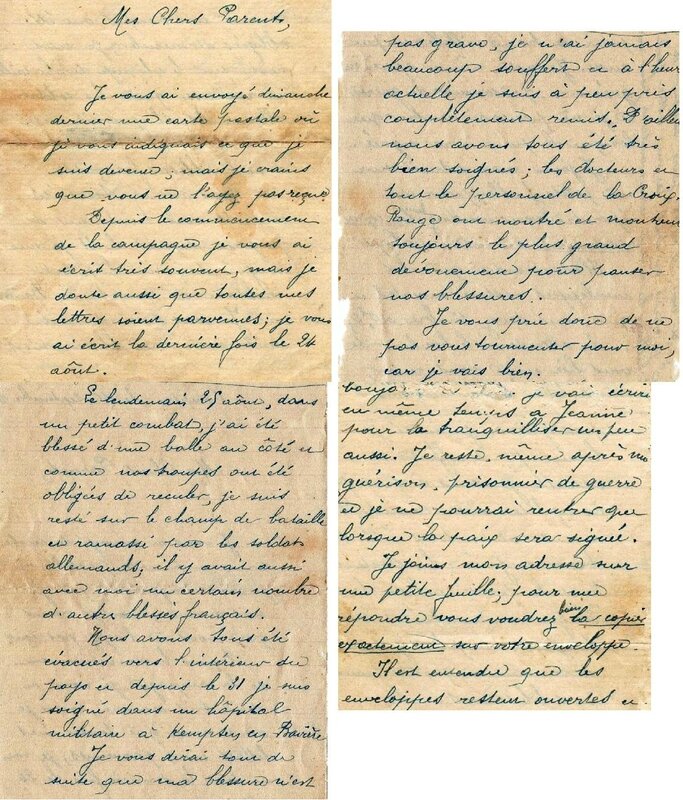 Mes Chers Parents,
Je vous ai envoyé dimanche
dernier une carte postale où
je vous indiquais ce que je
suis devenu ; mais je crains
que vous ne l'ayez pas reçue.
Depuis le commencement
de la campagne je vous ai
écrit très souvent, mais je
doute aussi que toutes mes
lettres soient parvenues ; je vous
ai écrit la dernière fois le 24
août.
Le lendemain 25 août, dans
un petit combat, j'ai été
blessé d'une balle au côté et
comme nos troupes ont été
obligées de reculer, je suis
resté sur le champ de bataille
et ramassé par les soldats
allemands, il y avait aussi
avec moi un certain nombre
d'autres blessés français.
Nous avons tous été
évacués vers l'intérieur du
pays et depuis le 31 je suis
soigné dans un hôpital
militaire à Kempten en Bavière
Je vous dirai tout de
suite que ma blessure n'est
pas grave, je n'ai jamais
beaucoup souffert et à l'heure
actuelle je suis à peu près
complètement remis. D'ailleu
nous avons tous été très
bien soignés ; les docteurs et
tout le personnel de la Croix
Rouge ont montré et montrent
toujours le plus grand
dévouement pour panser
nos blessures.
Je vous prie donc de ne
pas vous tourmenter pour moi,
car je vais bien.
je vais écrire
en même temps à Jeanne
pour la tranquilliser un peu
aussi. Je reste, même après ma
guérison, prisonnier de guerre
et je ne pourrai rentrer que
lorsque la paix sera signée.
Je joins mon adresse sur
une petite feuille ; pour me
répondre vous voudrez bien la copier
exactement sur votre enveloppe.
Il est entendu que les
enveloppes restent ouvertes et